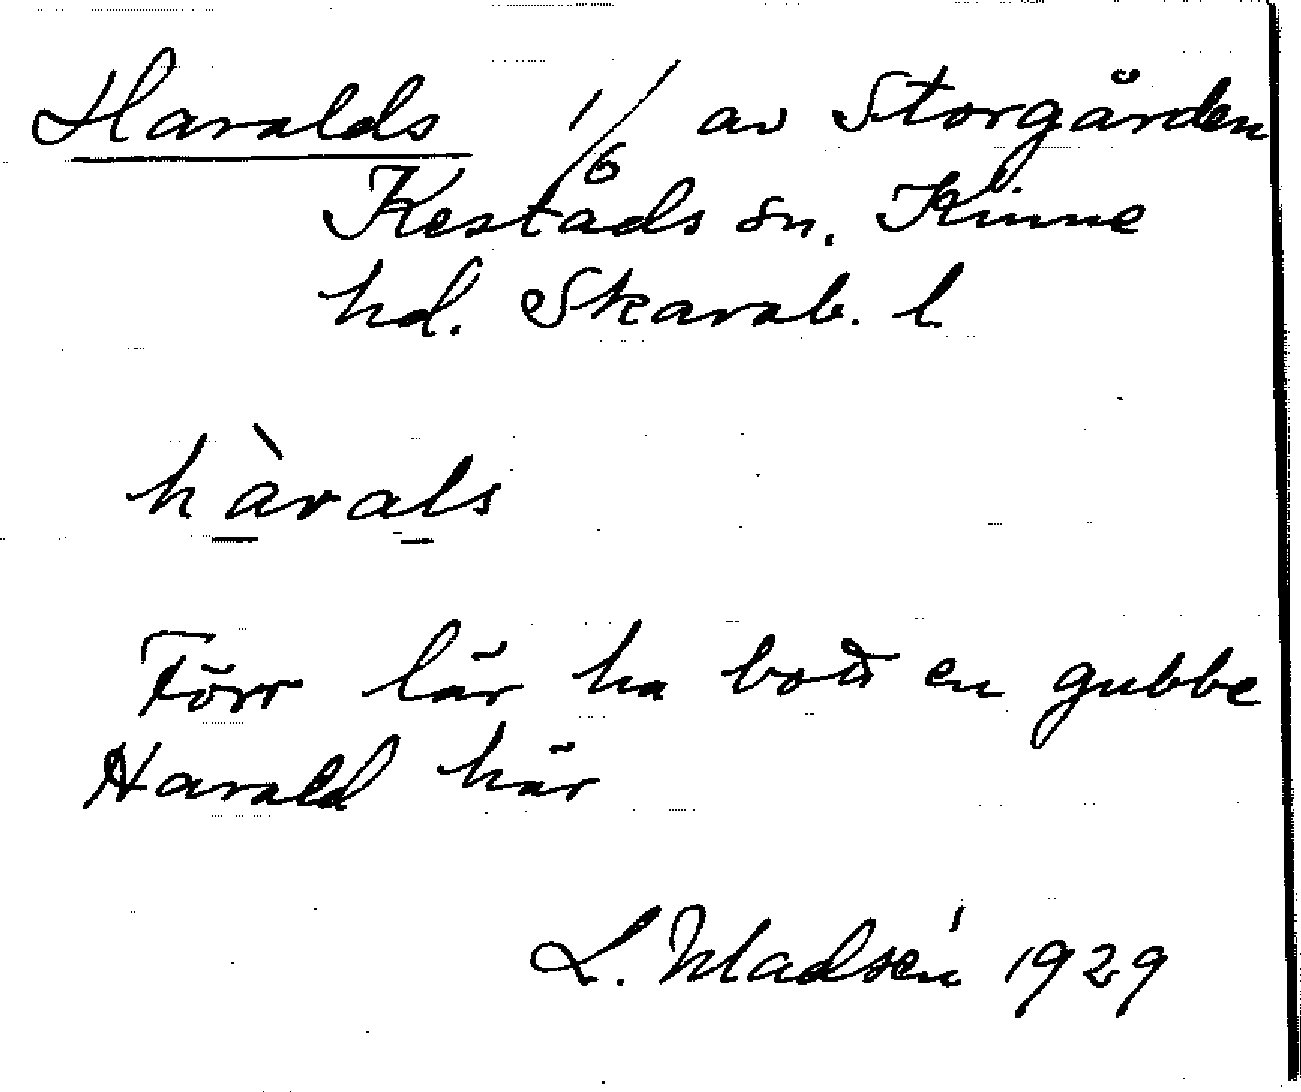 Haralds 1/6 av Storgården
Kestads sn. Kinne
hd. Skarab. l.
hàrals
Förr lär ha bott en gubbe
Harald här
L. Madsén 1929